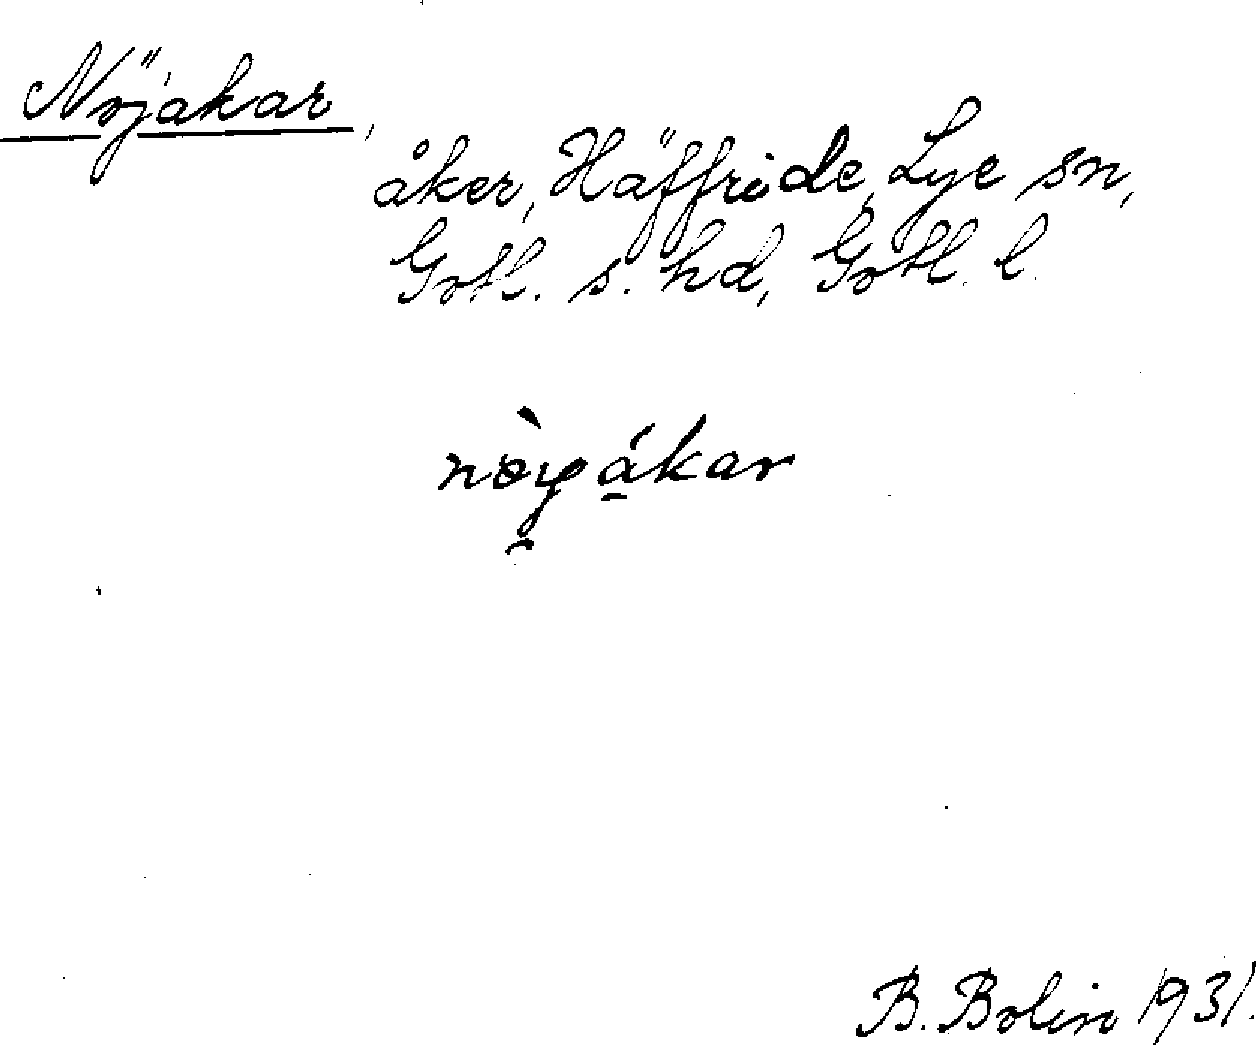 Nöjakar,
åker, Häffride, Lye sn,
Gotl. s. hd, Gotl. l.
nòyákar
B. Bolin 1931.